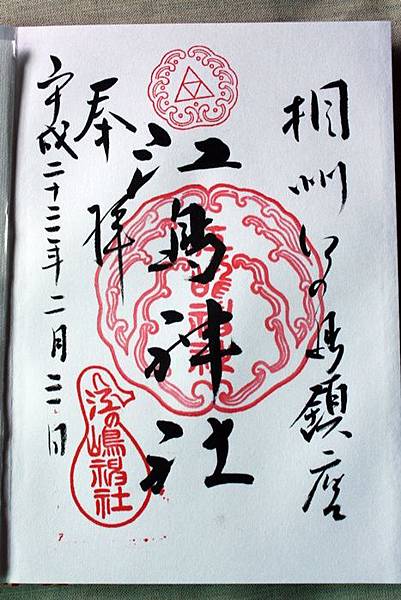 相州江の島鎮座
江島神社
奉拝
平成二十三年二月三日
江の嶋神社